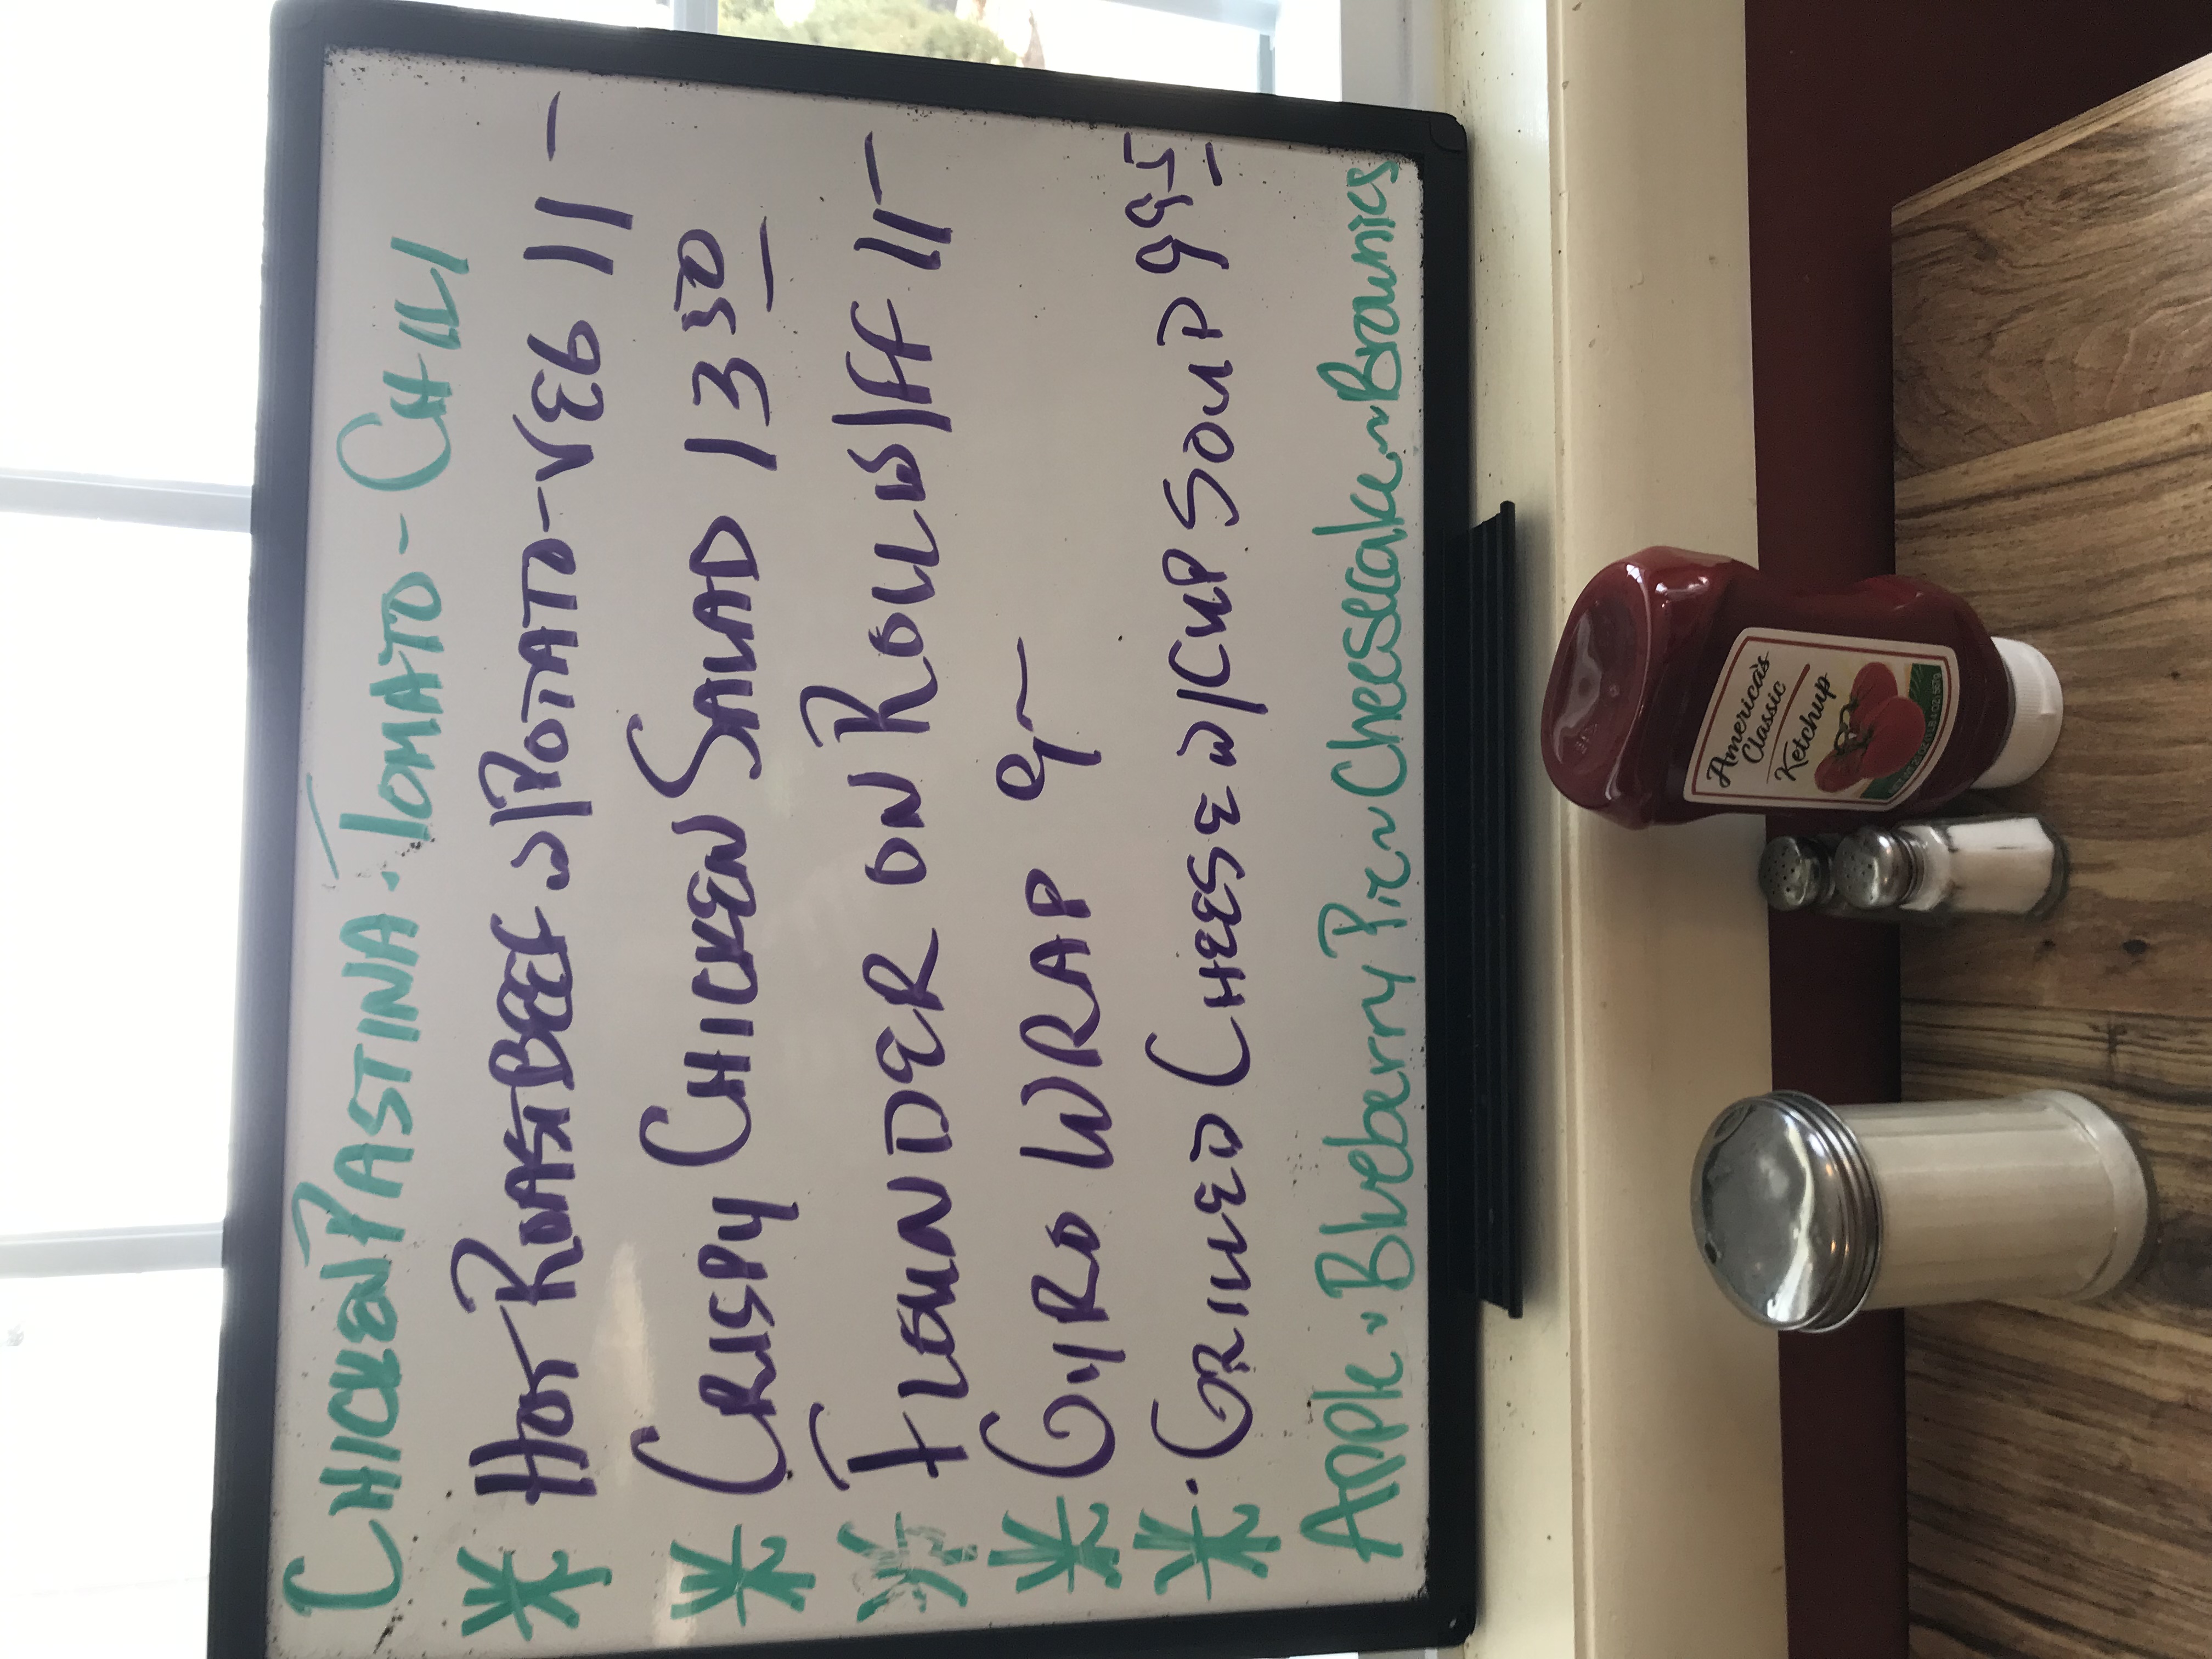 CHICKEN PASTINA · TOMATO - CHILI
* HOT ROASTBEEF w/POTATO-VEG 11-
* CRISPY CHICKEN SALAD 13 50
* FLOUNDER ON ROLL w/FF 11-
* GYRO WRAP 9-
* · GRILLED CHEESE w/CUP SOUP 9 95
Apple ~ Blueberry Pie ~ Cheesecake ~ Brownies
America's
Classic
Ketchup